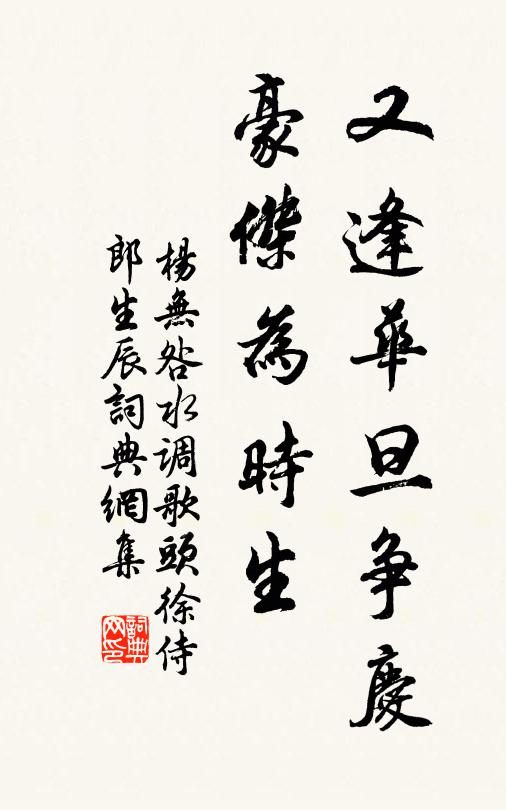 又逢華旦争慶
豪傑為時生
楊無咎水调歌頭徐侍
郎生辰詞典網集
詞典网印